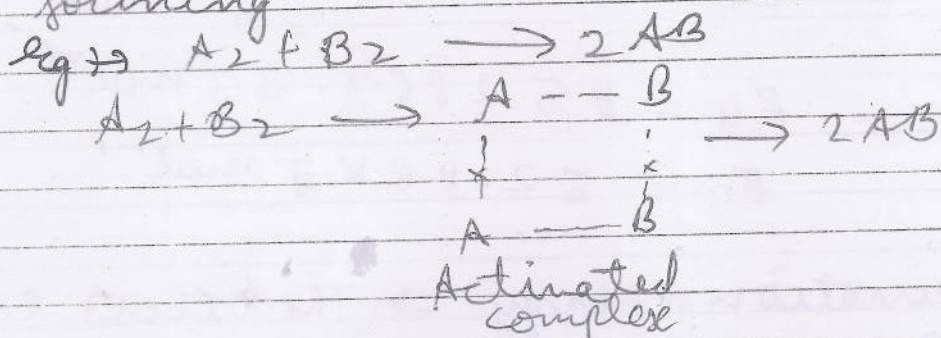 forming
eg → A2 + B2 ⟶ 2AB
A2 + B2 ⟶ A -- B ⟶ 2AB
A — B
Activated
complex